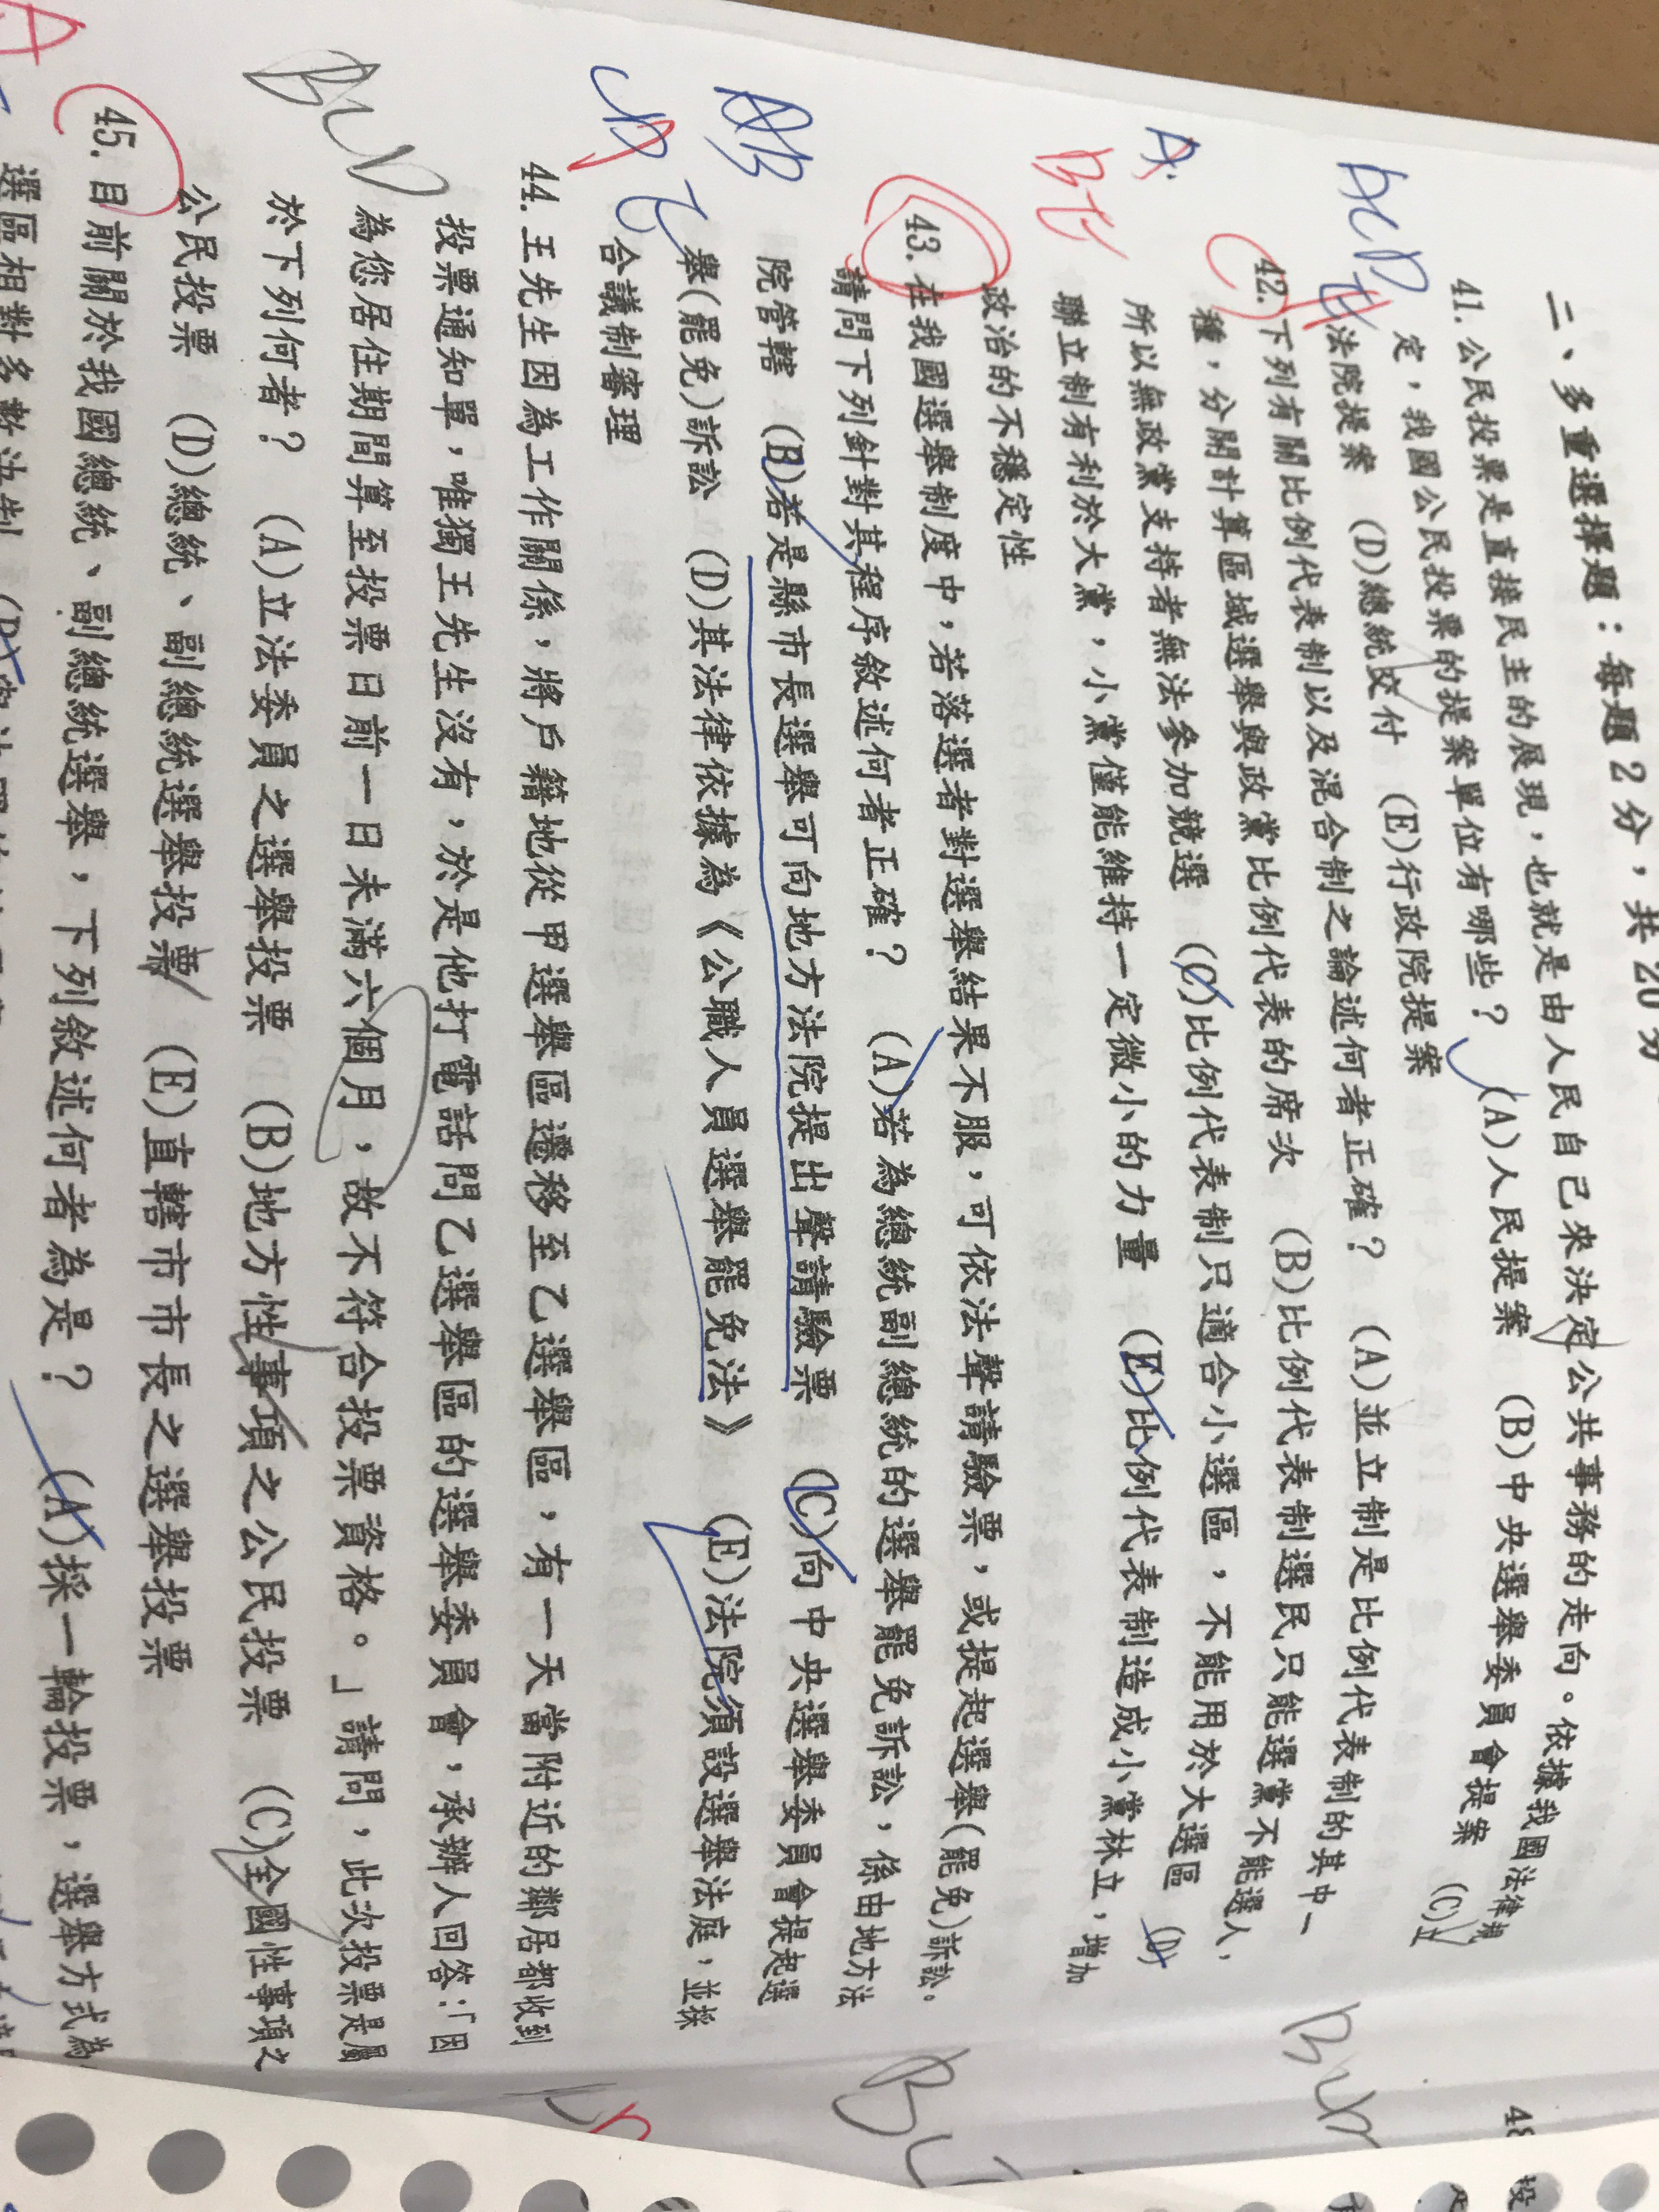 二、多重選擇題：每題2分，共20分
41.公民投票是直接民主的展現，也就是由人民自己來決定公共事務的走向。依據我國法律規
定，我國公民投票的提案單位有哪些？ (A)人民提案 (B)中央選舉委員會提案 (C)立
法院提案 (D)總統交付 (E)行政院提案
42.下列有關比例代表制以及混合制之論述何者正確？ (A)並立制是比例代表制的其中一
種，分開計算區域選舉與政黨比例代表的席次 (B)比例代表制選民只能選黨不能選人，
所以無政黨支持者無法參加競選 (C)比例代表制只適合小選區，不能用於大選區 (D)
聯立制有利於大黨，小黨僅能維持一定微小的力量 (E)比例代表制造成小黨林立，增加
政治的不穩定性
43.在我國選舉制度中，若落選者對選舉結果不服，可依法聲請驗票，或提起選舉(罷免)訴訟。
請問下列針對其程序敘述何者正確？ (A)若為總統副總統的選舉罷免訴訟，係由地方法
院管轄 (B)若是縣市長選舉可向地方法院提出聲請驗票 (C)向中央選舉委員會提起選
舉(罷免)訴訟 (D)其法律依據為《公職人員選舉罷免法》 (E)法院須設選舉法庭，並採
合議制審理
44.王先生因為工作關係，將戶籍地從甲選舉區遷移至乙選舉區，有一天當附近的鄰居都收到
投票通知單，唯獨王先生沒有，於是他打電話問乙選舉區的選舉委員會，承辦人回答：「因
為您居住期間算至投票日前一日未滿六個月，故不符合投票資格。」請問，此次投票是屬
於下列何者？ (A)立法委員之選舉投票 (B)地方性事項之公民投票 (C)全國性事項之
公民投票 (D)總統、副總統選舉投票 (E)直轄市市長之選舉投票
45.目前關於我國總統、副總統選舉，下列敘述何者為是？ (A)採一輪投票，選舉方式為
選區相對多數決制
ACD
A
BE
AB
BCD
A
48
投